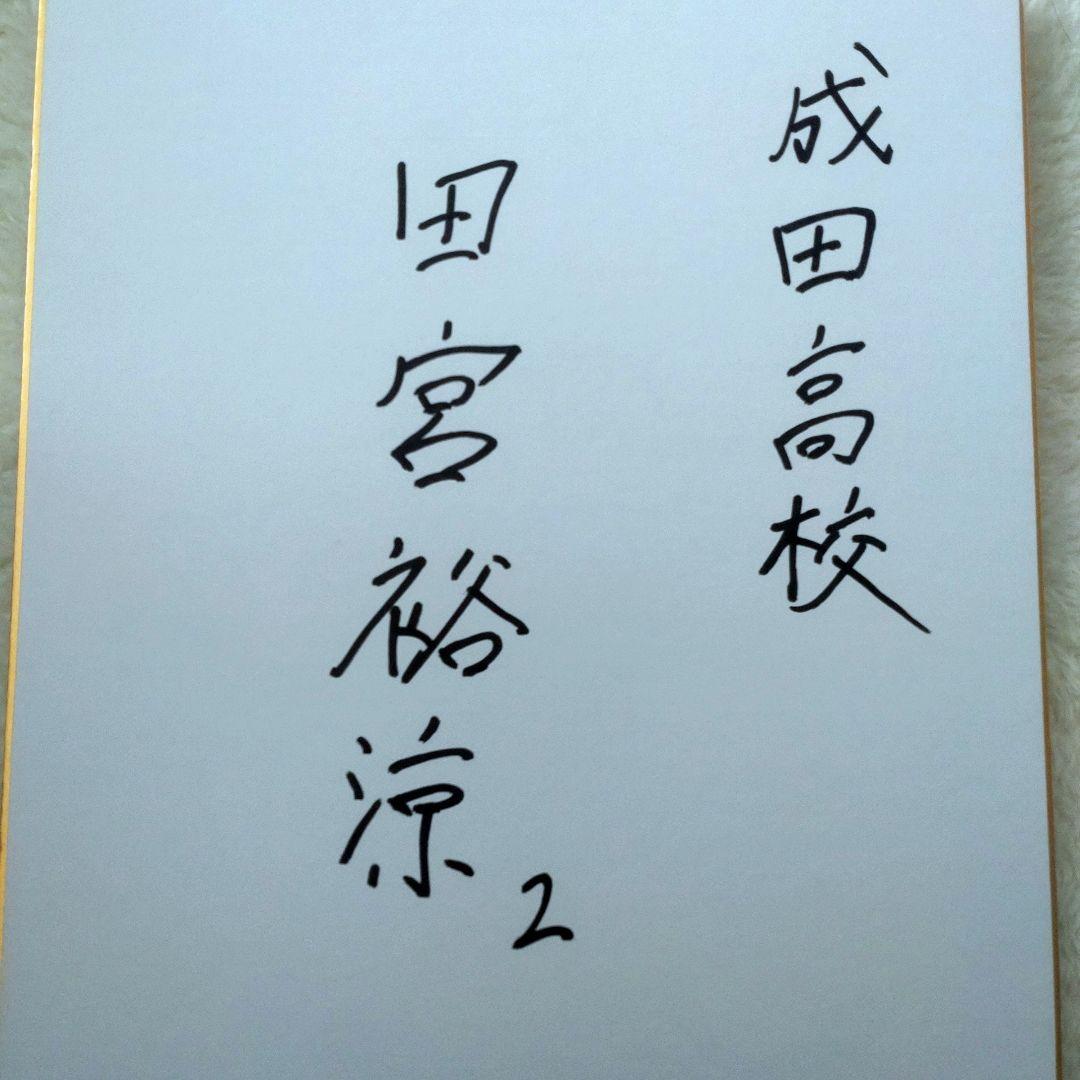 成田高校
田宮裕涼
2